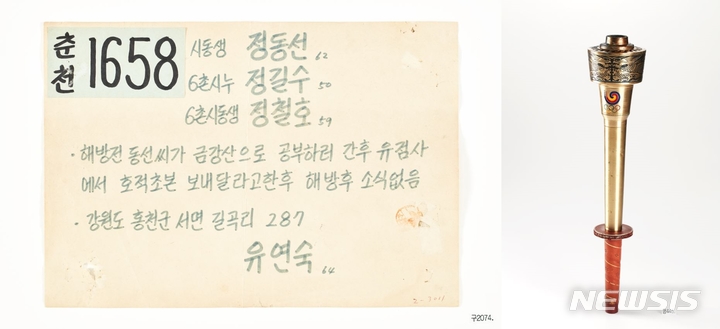 춘천 1658
시동생 정동선 62
6촌시누 정길수 50
6촌시동생 정철호 59
· 해방전 동선씨가 금강산으로 공부하러 간후 유점사
에서 호적초본 보내달라고한후 해방후 소식없음
· 강원도 홍천군 서면 길곡리 287
유연숙 64
구2074.
NEWSIS